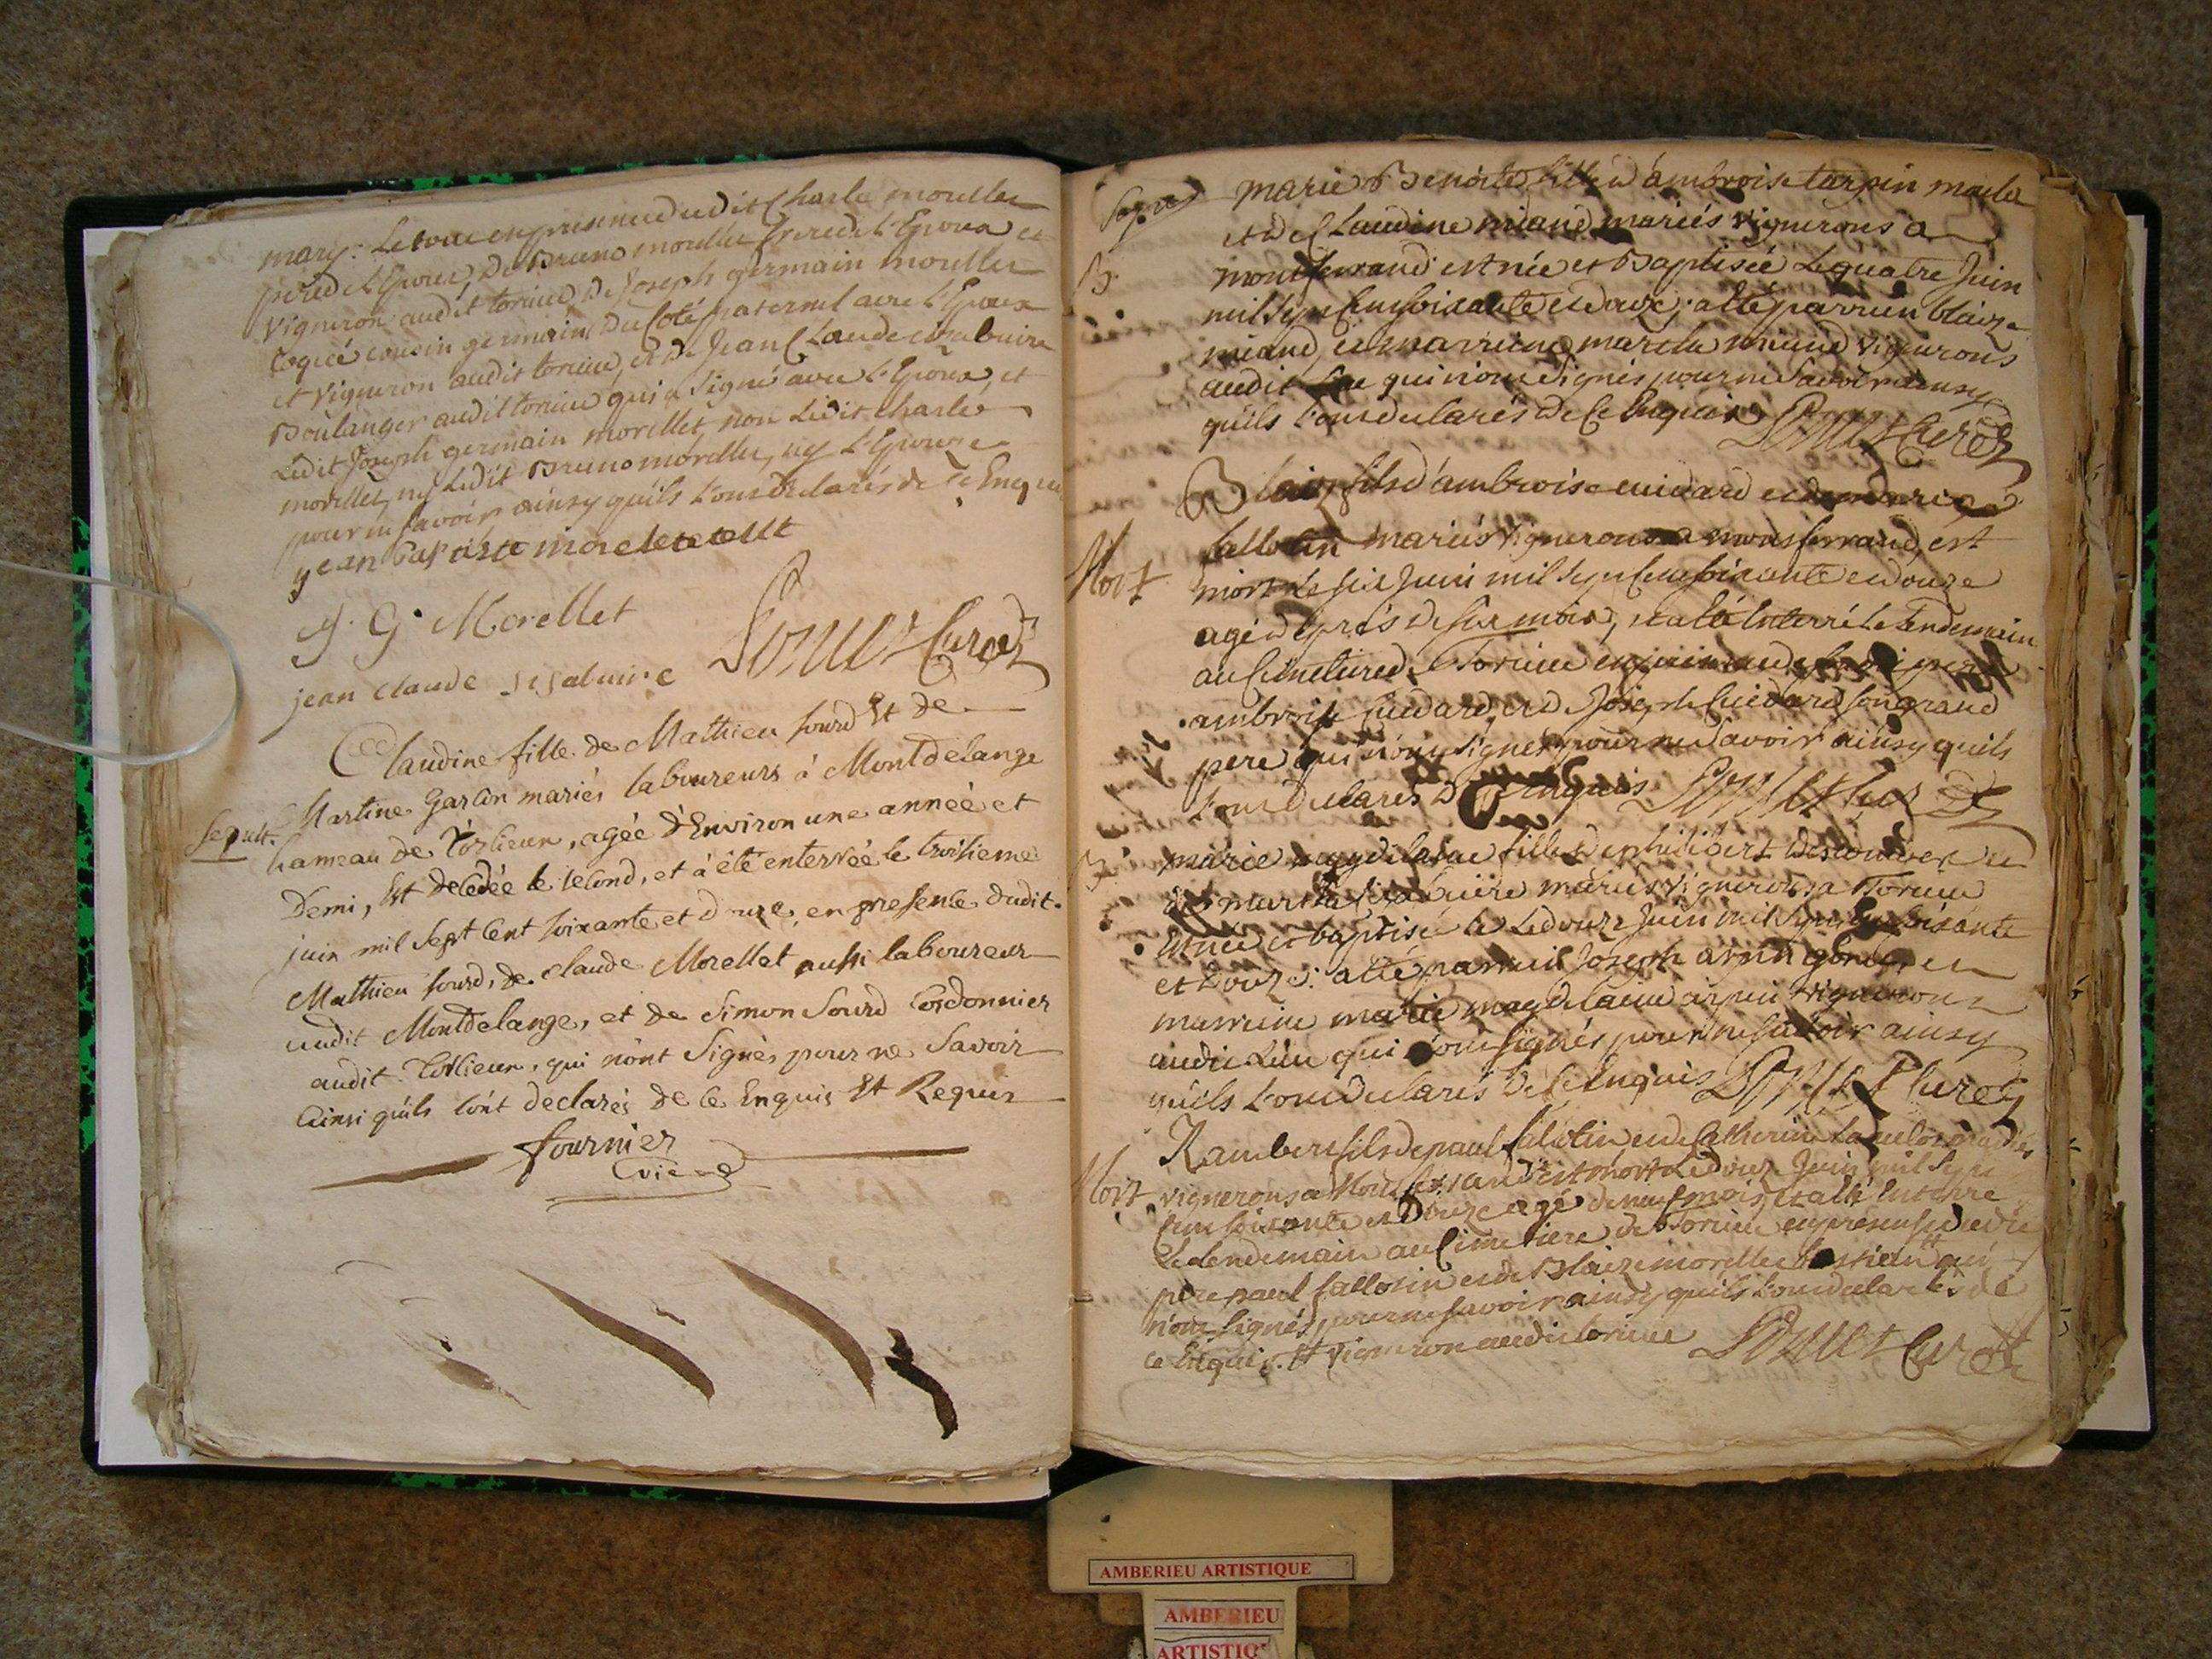 mary. Le tout en presence dudit Charle morellet
pere de L'Epoux, de Bruno morellet frere de L'Epoux et
vigneron audit torcieu, de Joseph germain morellet
cousin germain du Coté paternel avec L'Epoux
et vigneron audit torcieu, et de Jean Claude
Boulanger audit torcieu qui a signé avec L'Epoux, et
Ledit Joseph germain morellet, non Ledit Charle
morellet, ny Ledit Bruno morellet, ny L'Epouze
pour ne savoir ainsy quils L'ont declarés de ce Enquis
jean batiste morelet
J. G. Morellet
jean claude Curé
Claudine fille de Mathieu sourd Et de
Martine Garlin mariés laboureurs à Montdelange
Sepult.
hameau de Torlieux, agée d'Environ une année et
Demi, Est decedée le second, et à été enterrée le troisieme
juin mil sept cent soixante et douze, en presence dudit
Mathieu sourd, de Claude Morellet aussi laboureur
audit Montdelange, et de Simon Sourd Cordonnier
audit Torlieux, qui n'ont signés pour ne Savoir
Ainsi qu'ils l'ont declarés de ce Enquis Et Requis
fournier
vic
marie Benoite fille d'ambroise tarpin
et de Claudine miand mariés vignerons a
B.
montferrand est née et Baptisée Le quatre Juin
mil sept Cens soixante et douze; a eté parrain blaize
miand, et marraine miand vignerons
audit Lieu qui n'ont signés pour ne savoir ainsy
quils L'ont declarés de Ce Enquis Curé
Blaize fils d'ambroise cuidard et de marie
sallotin mariés vignerons a montferrand, est
Mort
mort Le six Juin mil sept Cens soixante et douze
agé d'eprés de six mois, et a eté Enterré Le Lendemain
au Cimetiere de Torcieu en
ambroise Cuidard et de Joseph Cuidard son grand
pere qui n'ont signés pour ne savoir ainsy quils
L'ont declarés de Ce Enquis Curé
B.
marie magdelaine fille de philibert et
de marthe mariés vignerons a Torcieu
Est née et baptisée Le douze Juin mil sept Cens soixante
et douze: a eté parrain Joseph arpin et
marraine marie magdelaine arpin vignerons
audit Lieu qui n'ont signés pour ne savoir ainsy
quils L'ont declarés de Ce Enquis Curé
Rambert fils de paul sallotin et de Catherine mariés
Mort
vignerons a Montferrand est mort Le douze Juin mil sept
Cens soixante et Douze agé de neuf mois, et a eté Enterré
Le Lendemain au Cimetiere de Torcieu en presence dudit
pere paul sallotin et de Blaize morellet bastian qui
n'ont signés pour ne savoir ainsy quils L'ont declarés de
ce Enquis. vigneron audit torcieu Curé
AMBERIEU ARTISTIQUE
AMBERIEU
ARTISTIQ